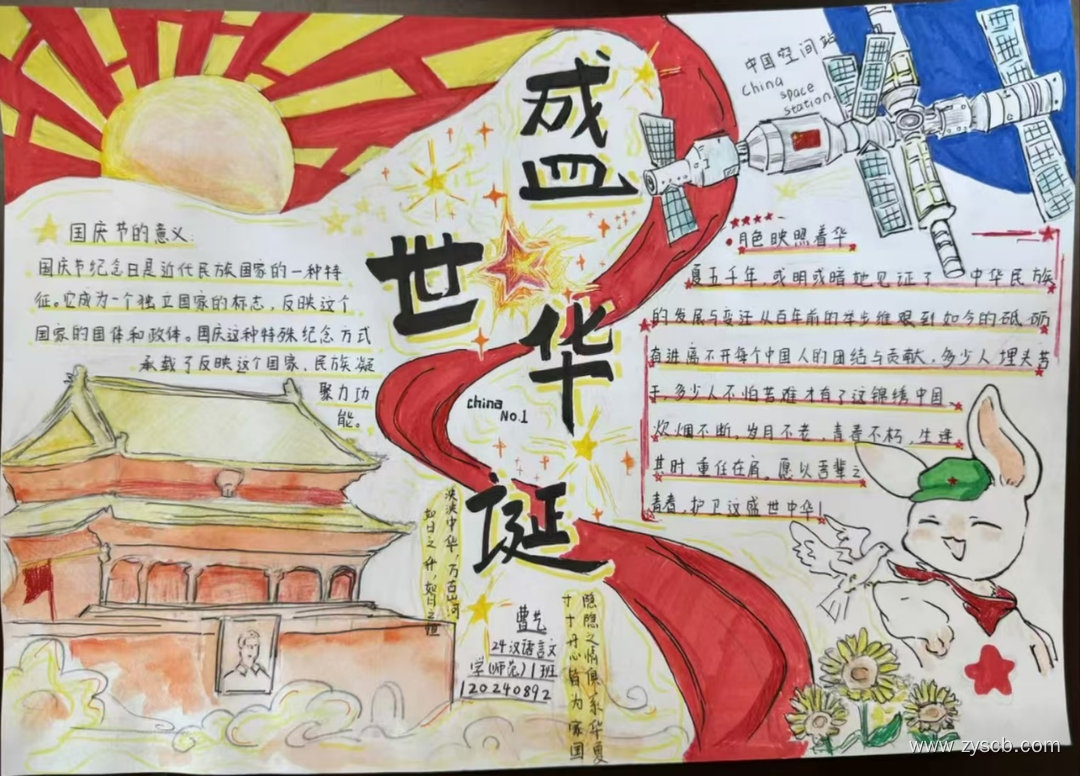 盛
世
华
诞
中国空间站
China
space
station
国庆节的意义：
国庆节纪念日是近代民族国家的一种特
征。它成为一个独立国家的标志，反映这个
国家的国体和政体。国庆这种特殊纪念方式
承载了反映这个国家、民族凝
聚力功
能。
月色映照着华
夏五千年，或明或暗她见证了 中华民族
的发展与变迁从百年前的举步维艰到如今的砥砺
奋进离不开每个中国人的团结与贡献，多少人埋头苦
干，多少人不怕苦难才有了这锦绣中国。
炊烟不断。岁月不老，青春不朽，生逢
其时重任在肩。愿以吾辈之
青春，护卫这盛世中华！
china
No.1
泱泱中华，万古山河
如日之升，如月之恒
曹艺
24汉语言文
学(师范)1班
120240892
隐隐之情俱系华夏
寸寸丹心皆为家国
www.zyscb.com